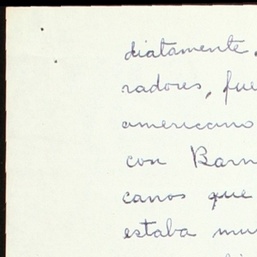 diatamente,
radores, fue
americano
con Barn
canos que
estaba mu